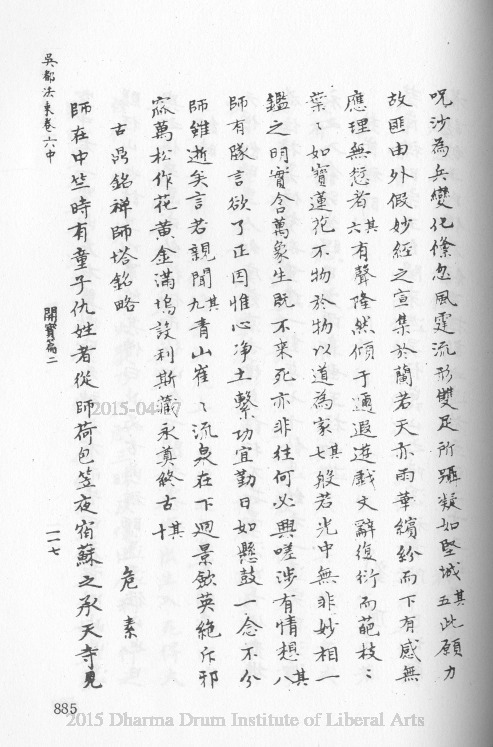 呪沙為兵變化倏忽風霆流形雙足所躡凝如堅城其五此願力
故匪由外假妙經之宣集於蘭若天亦雨華繽紛而下有感無
應理無愆者其六有聲隆然傾于邇遐遊戲文辭復衍而葩枝〻
葉〻如寶蓮花不物於物以道為家其七般若光中無非妙相一
鑑之明實含萬象生既不來死亦非往何必興嗟涉有情想其八
師有隊言欲了正因惟心淨土繫功宜勤日如懸鼓一念不分
師雖逝矣言若親聞其九青山崔〻流泉在下迴景歛英絶斥邪
窳萬松作花黄金滿塢設利斯藏永奠終古其十
古鼎銘禅師塔銘略
危素
師在中竺時有童子仇姓者從師荷包笠夜宿蘇之承天寺見
吳都法乘卷六中
開寶篇二
一一七
885
2015-04-17
2015 Dharma Drum Institute of Liberal Arts